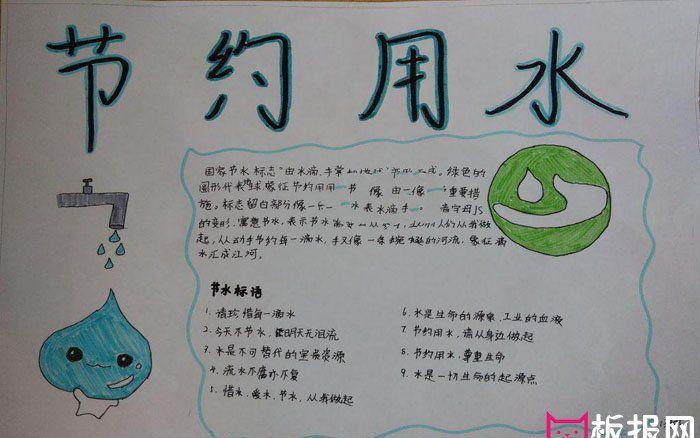 节约用水
国家节水标志"由水滴,手掌和地球
绿色的
圆形代表地球,象征节约用
重要措
施。标志留白部分像一只
水表水滴手
拼音字母JS
的变形,寓意节水,表示节水
从我做
起,从动手节约每一滴水,手又像一条蜿蜒的河流,象征滴
水汇成江河。
节水标语
1. 请珍惜每一滴水
2. 今天不节水,
明天无泪流
3. 水是不可替代的宝贵资源
4. 流水不腐亦不复
5. 惜水、爱水、节水,从我做起
6. 水是生命的源泉,工业的血液
7. 节约用水,请从身边做起
8. 节约用水,尊重生命
9. 水是一切生命的起源点
板报网